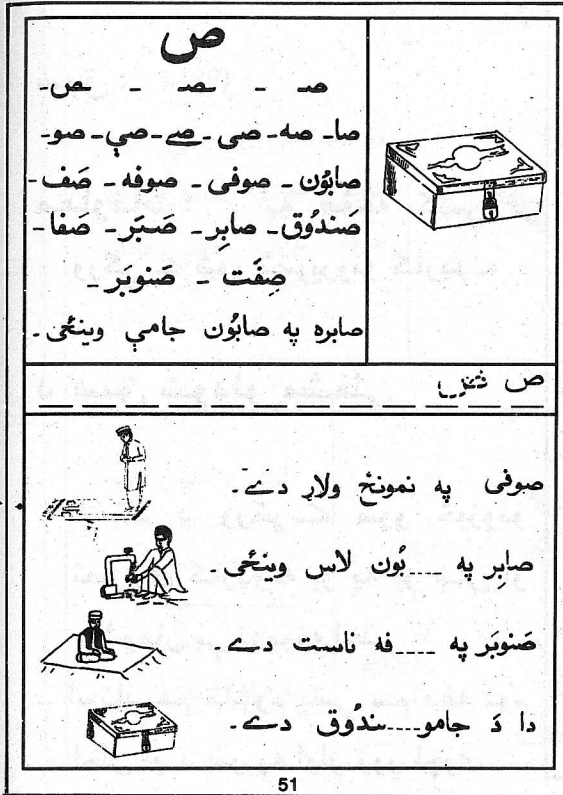 ص
صـ - ـصـ - ـص -
صا - صه - صی - صے - صې - صو -
صابُون - صوفی - صوفه - صَف -
صَندُوق - صابِر - صَبَر - صفا -
صِفَت - صَنوبَر -
صابره په صابُون جامې وینځی.
ص
صوفی په نمونځ ولاړ دے.
صابِر په ----بُون لاس وینځی.
صَنوبَر په ----فه ناست دے.
دا دَ جامو----ندُوق دے.
51